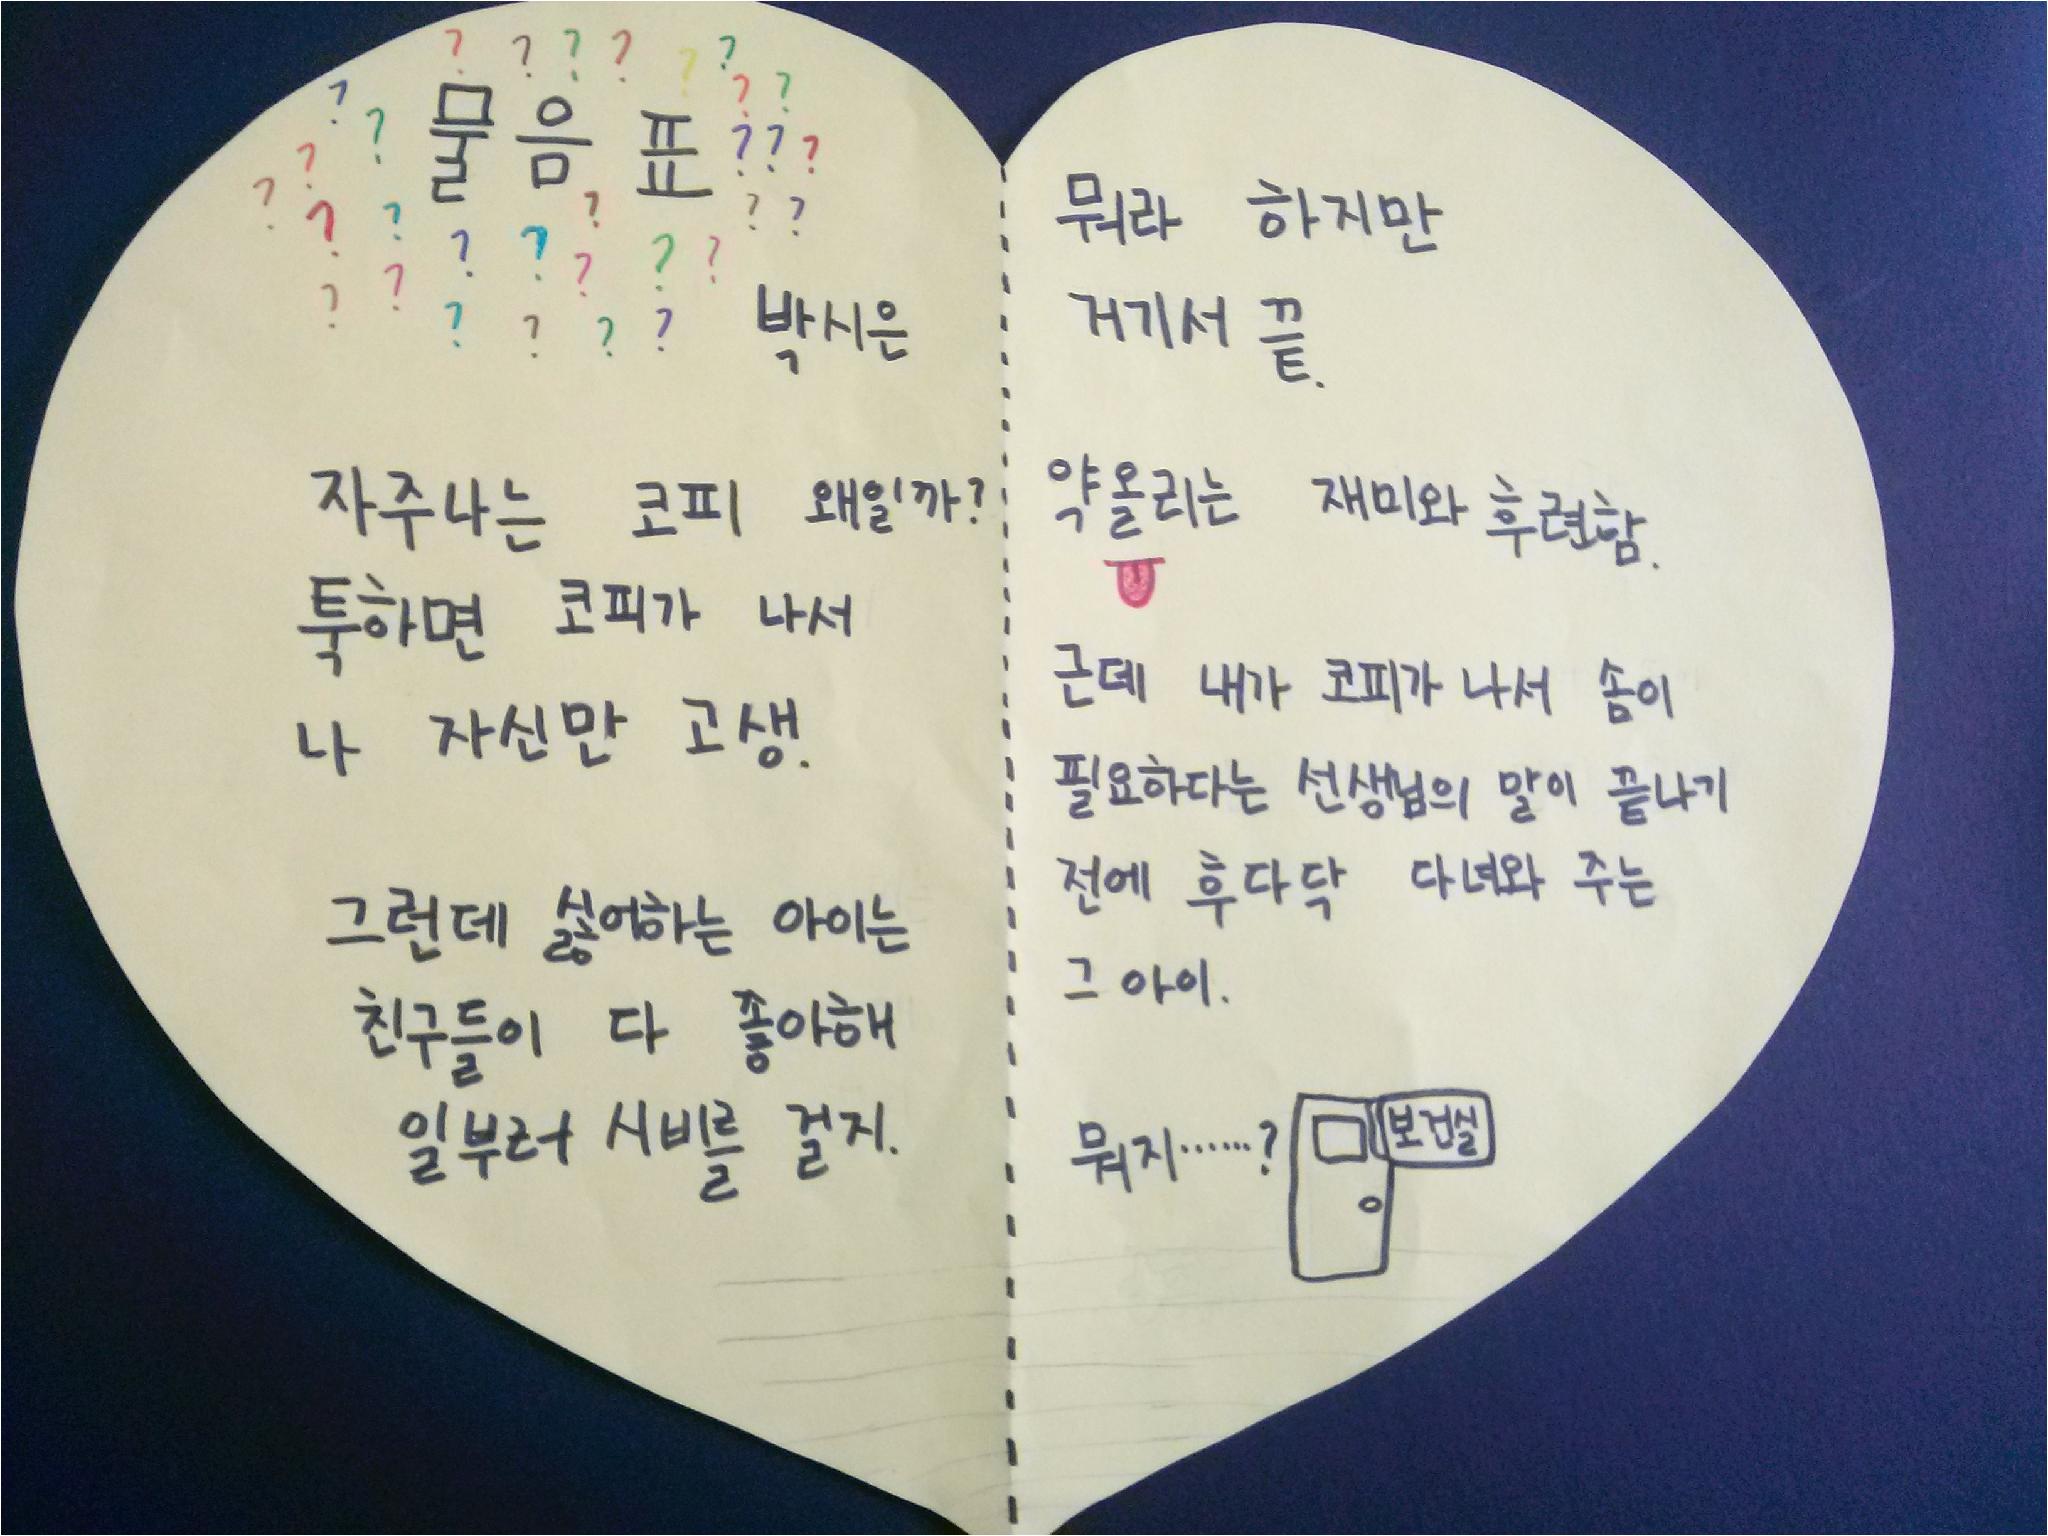 물음표
박시은
자주나는 코피 왜일까?
툭하면 코피가 나서
나 자신만 고생.
그런데 싫어하는 아이는
친구들이 다 좋아해
일부러 시비를 걸지.
뭐라 하지만
거기서 끝.
약올리는 재미와 후련함.
근데 내가 코피가 나서 솜이
필요하다는 선생님의 말이 끝나기
전에 후다닥 다녀와 주는
그 아이.
뭐지……?
보건실